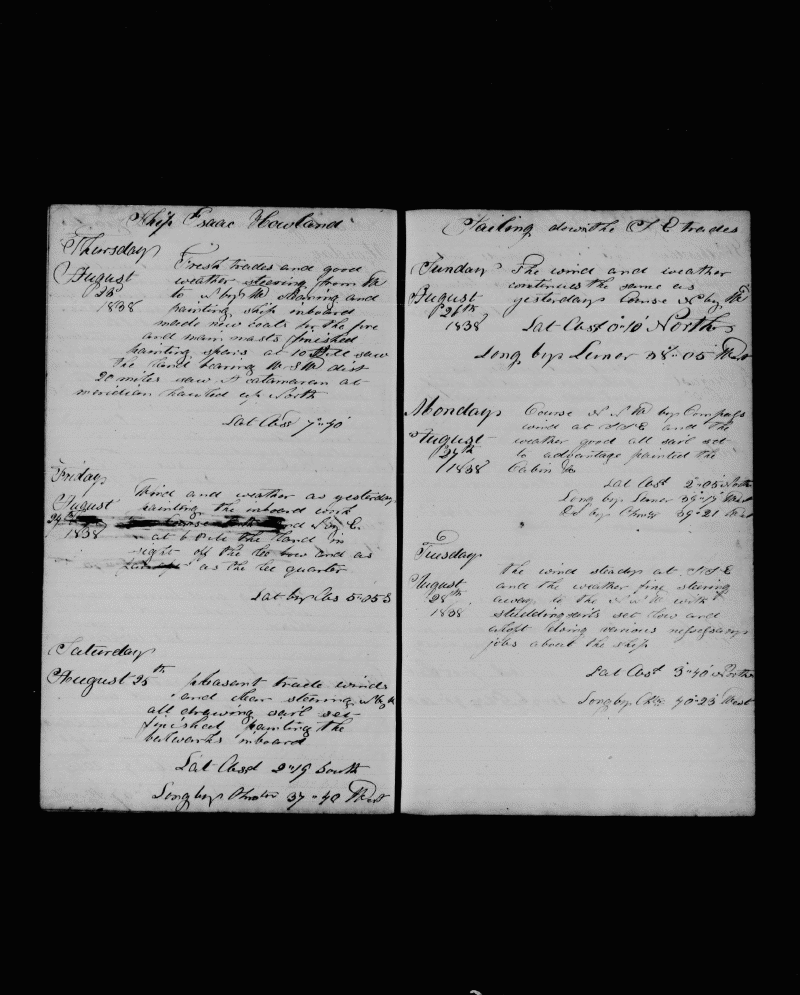 Ship Isaac Howland
Thursday
August
23
1838
Fresh trades and good
weather steering from W
to N by W cleaning and
painting ship inboard
made new coats for the fore
and main masts finished
painting spars at 10 saw
the land bearing W S W dist
20 miles saw a catamaran at
meridian hauled up North
Lat Obsd 7"40
Friday
August
24
1838
Wind and weather as yesterday
painting the inboard work
at 6 the land in
sight off the lee bow and as
as the lee quarter
Lat by Obs 5"05 S
Saturday
August 25th
pleasant trade winds
and clear steering N by W
all drawing sail set
finished painting the
bulwarks inboard
Lat Obsd 2"19 South
Long by Chro 37"40 West
Sailing down the S E trades
Sunday
August
26th
1838
The wind and weather
continues the same as
yesterday Course N by W
Lat Obsd 0"10 North
Long by Lunar 38"05 West
Monday
August
27th
1838
Course N N W by Compass
wind at S S E and the
weather good all sail set
to advantage painted the
Cabin &c
Lat Obsd 2"05 North
Long by Lunar 39"17 West
Do by Chro 39"21 West
Tuesday
August
28th
1838
the wind steady at S S E
and the weather fine steering
away to the N N W with
studdingsails set low and
aloft doing various necessary
jobs about the ship
Lat Obsd 3"40 North
Long by Chr 40"23 West